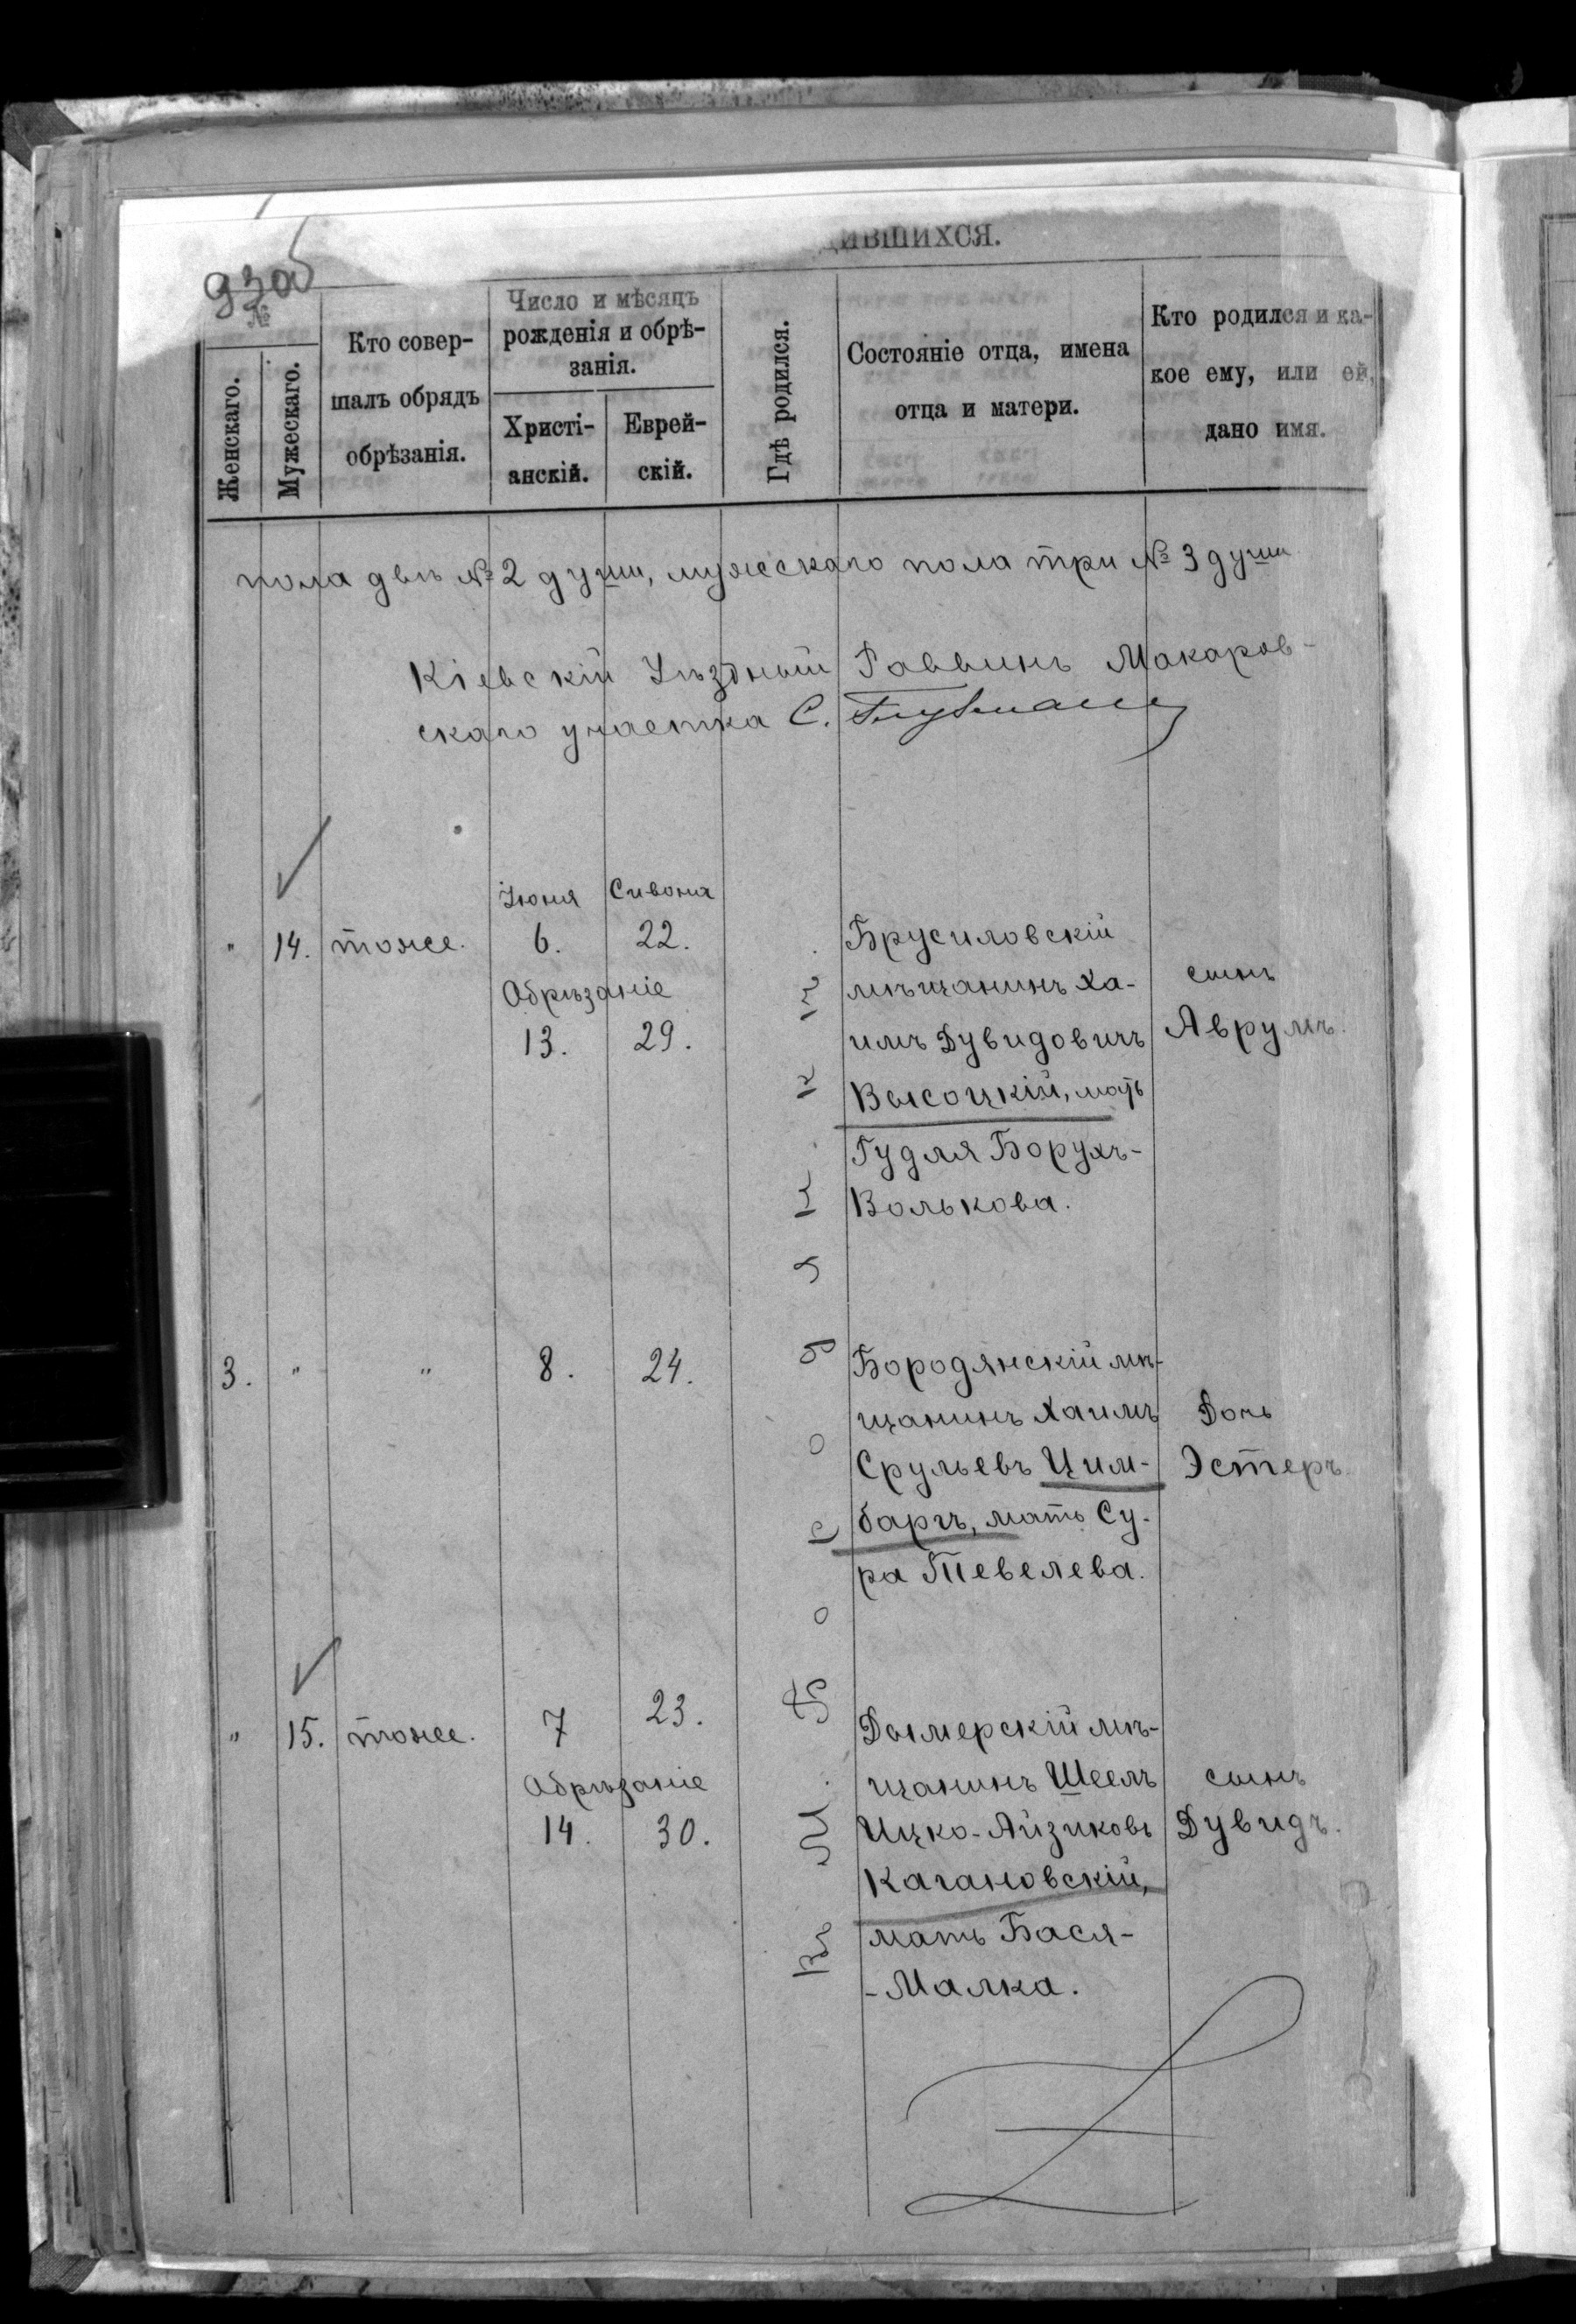 ДИВШИХСЯ.
93об
№
Женскаго.
Мужескаго.
Кто совер-
шалъ обрядъ
обрѣзанія.
Число и мѣсяцъ
рожденія и обрѣ-
занія.
Христі-
анскій.
Еврей-
скій.
Гдѣ родился.
Состояніе отца, имена
отца и матери.
Кто родился и ка-
кое ему, или ей,
дано имя.
пола двѣ № 2 души, мужескаго пола три № 3 души
Кіевскій Уѣздный Раввинъ Макаров-
скаго участка С.
Іюня Сивона
" 14. тоже. 6. 22.
Обрѣзаніе
13. 29.
Брусиловскій
мѣщанинъ Ха-
имъ Дувидовичъ
Высоцкій, мать
Гудля Борухъ-
Волькова.
сынъ
Аврумъ.
3. " " 8. 24.
Бородянскій мѣ-
щанинъ Хаимъ
Срульевъ Цим-
баргъ, мать Су-
ра Тевелева.
Дочь
Эстеръ.
" 15. тоже. 7 23.
Обрѣзаніе
14. 30.
Дымерскій мѣ-
щанинъ Шеелъ
Ицко-Айзиковъ
Кагановскій,
мать Бася-
-Малка.
сынъ
Дувидъ.
Въ М. Бородянкѣ.